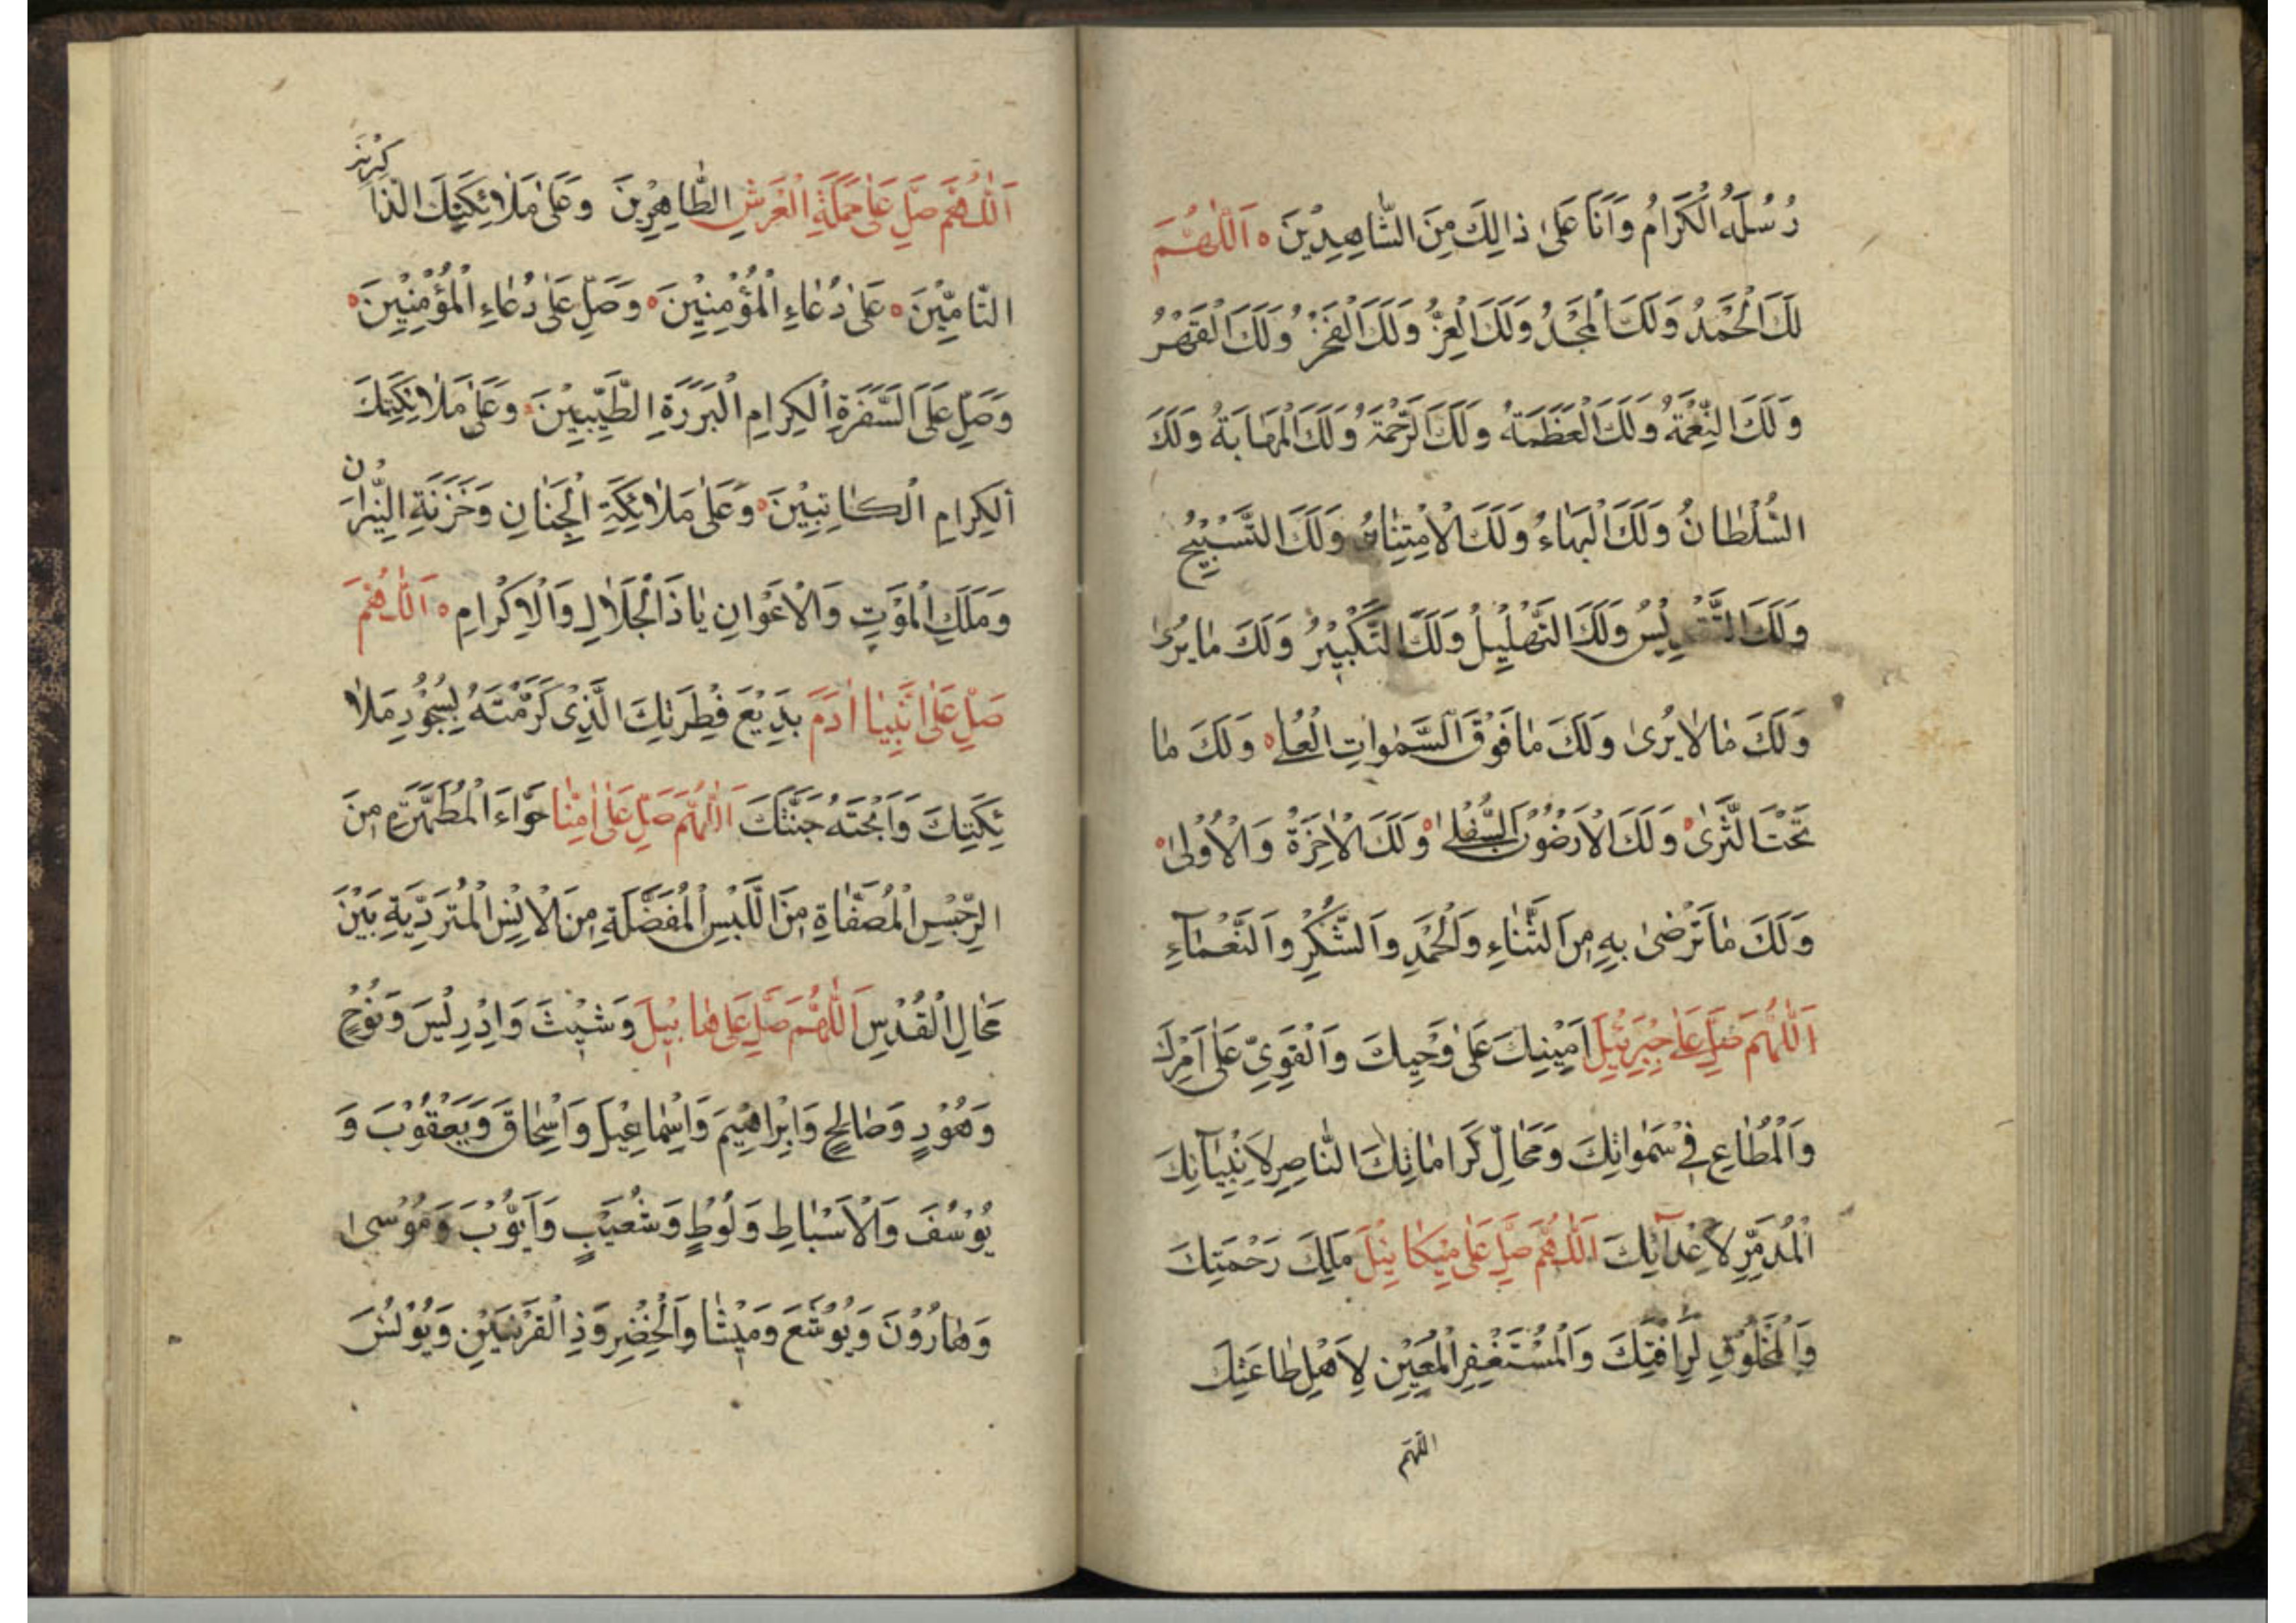 رُسُلَهُ الْكِرَامُ وَاَنَا عَلىٰ ذالِكَ مِنَ الشَّاهِدِيْنَ ه اَللّٰهُمَّ
لَكَ الْحَمْدُ وَلَكَ الْمَجْدُ وَلَكَ الْعِزُّ وَلَكَ الْفَخْرُ وَلَكَ الْقَهْرُ
وَلَكَ النِّعْمَةُ وَلَكَ الْعَظَمَةُ وَلَكَ الرَّحْمَةُ وَلَكَ الْمَهَابَةُ وَلَكَ
السُّلْطَانُ وَلَكَ الْبَهَاءُ وَلَكَ الْاِمْتِنَانُ وَلَكَ التَّسْبِيْحُ
وَلَكَ التَّقْدِيْسُ وَلَكَ التَّهْلِيْلُ وَلَكَ التَّكْبِيْرُ وَلَكَ مَا يُرىٰ
وَلَكَ مَا لَا يُرىٰ وَلَكَ مَا فَوْقَ السَّمٰوَاتِ الْعُلىٰ ه وَلَكَ مَا
تَحْتَ الثَّرىٰ ه وَلَكَ الْاَرَضُوْنَ السُّفْلىٰ ه وَلَكَ الْاٰخِرَةُ وَالْاُوْلىٰ ه
وَلَكَ مَا تَرْضىٰ بِهِ مِنَ الثَّنَاءِ وَالْحَمْدِ وَالشُّكْرِ وَالنَّعْمَآءِ
اَللّٰهُمَّ صَلِّ عَلىٰ جِبْرَئِيْلَ اَمِيْنِكَ عَلىٰ وَحْيِكَ وَالْقَوِيِّ عَلىٰ اَمْرِكَ
وَالْمُطَاعِ فِيْ سَمٰوَاتِكَ وَمَحَالِّ كَرَامَاتِكَ النَّاصِرِ لِاَنْبِيَآئِكَ
الْمُدَمِّرِ لِاَعْدَآئِكَ اَللّٰهُمَّ صَلِّ عَلىٰ مِيْكَائِيْلَ مَلَكِ رَحْمَتِكَ
وَالْمَخْلُوْقِ لِرَاْفَتِكَ وَالْمُسْتَغْفِرِ الْمُعِيْنِ لِاَهْلِ طَاعَتِكَ
اللّهمّ
اَللّٰهُمَّ صَلِّ عَلىٰ حَمَلَةِ الْعَرْشِ الطَّاهِرِيْنَ وَعَلىٰ مَلٰائِكَتِكَ الذَّاكِرِيْنَ
التَّامِّيْنَ ه عَلىٰ دُعَاءِ الْمُؤْمِنِيْنَ ه وَصَلِّ عَلىٰ دُعَاءِ الْمُؤْمِنِيْنَ ه
وَصَلِّ عَلَى السَّفَرَةِ الْكِرَامِ الْبَرَرَةِ الطَّيِّبِيْنَ ه وَعَلىٰ مَلٰائِكَتِكَ
الْكِرَامِ الْكَاتِبِيْنَ ه وَعَلىٰ مَلٰائِكَةِ الْجِنَانِ وَخَزَنَةِ النِّيْرَانِ
وَمَلَكِ الْمَوْتِ وَالْاَعْوَانِ يَا ذَا الْجَلَالِ وَالْاِكْرَامِ ه اَللّٰهُمَّ
صَلِّ عَلىٰ اَبِيْنَا اٰدَمَ بَدِيْعِ فِطْرَتِكَ الَّذِيْ كَرَّمْتَهُ بِسُجُوْدِ مَلٰا
ئِكَتِكَ وَاَبَحْتَهُ جَنَّتَكَ اَللّٰهُمَّ صَلِّ عَلىٰ اُمِّنَا حَوَّاءَ الْمُطَهَّرَةِ مِنَ
الرِّجْسِ الْمُصَفَّاةِ مِنَ اللَّبْسِ الْمُفَضَّلَةِ مِنَ الْاِنْسِ الْمُتَرَدِّيَةِ بَيْنَ
مَحَالِ الْقُدْسِ اَللّٰهُمَّ صَلِّ عَلىٰ هَابِيْلَ وَشِيْثَ وَاِدْرِيْسَ وَنُوْحٍ
وَهُوْدٍ وَصَالِحٍ وَاِبْرَاهِيْمَ وَاِسْمَاعِيْلَ وَاِسْحَاقَ وَيَعْقُوْبَ وَ
يُوْسُفَ وَالْاَسْبَاطِ وَلُوْطٍ وَشُعَيْبٍ وَاَيُّوْبَ وَمُوْسىٰ
وَهَارُوْنَ وَيُوْشَعَ وَمِيْشَا وَالْخِضْرِ وَذِي الْقَرْنَيْنِ وَيُوْنُسَ